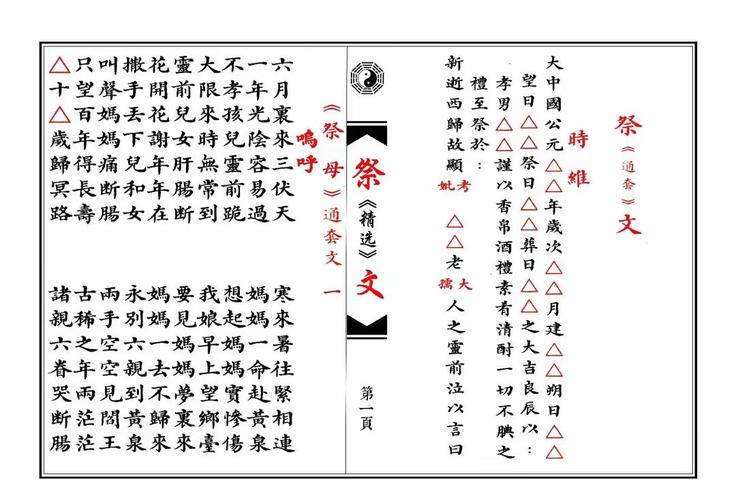 祭《通套》文
時維
大中國公元△△年歲次△△月建△△朔日△△
望日△△祭日△△葬日△△之大吉良辰以:
孝男△△謹以香帛酒禮素肴清酎一切不腆之
禮至祭於:
新逝西歸故顯 考妣 △△老 大孺 人之靈前泣以言曰
祭《精选》文
第一頁
《祭母》通套文 一
嗚呼
六月裏來三伏天 寒來暑往緊相連
一年光陰容易過 媽媽一命赴黃泉
不孝孩兒靈前跪 想起媽媽實慘傷
大限來時無常到 我娘早上望鄉臺
靈前兒女肝腸斷 要見媽媽夢裏來
花開花謝年年在 媽媽一去不歸來
撒手丟下兒和女 永別六親到黃泉
叫聲媽媽痛斷腸 兩手空空見閻王
只望百年得長壽 古稀之年兩茫茫
△十△歲歸冥路 諸親六眷哭斷腸